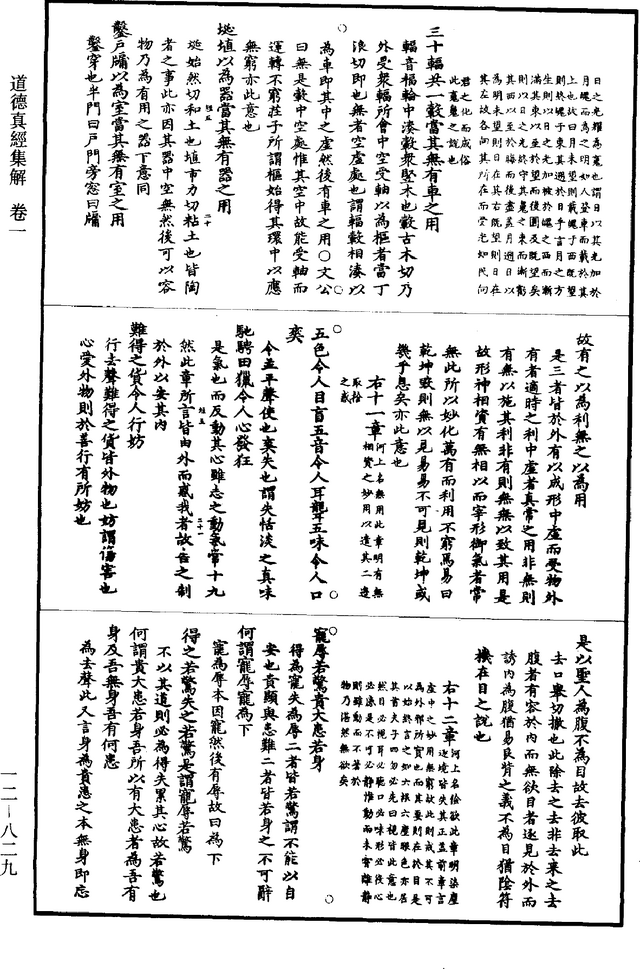 日之光耀為䰟也謂日以其光加於
月魄而為之明如人登車而載於其
上也故曰月未望則載魄于西既望
則終魄于東其遡於日乎言月之方
生則以日之光加被於魄之西而漸
滿其東以至於望而後圓及既望矣
則以日之光終守其魄之東而漸虧
其西以至於晦而後盡蓋月遡日以
為明未望則日在其右既望則日在
其左故各向其所在而受光如民向
君之化而成俗
此䰟魄之說也
三十輻共一轂當其無有車之用
輻音楅輪中湊轂衆堅木也轂古木切乃
外受衆輻所會中空受軸以為樞者當丁
浪切即也無者空虛處也謂輻轂相湊以
為車即其中之虛然後有車之用〇文公
曰無是轂中空處惟其空中故能受軸而
運轉不窮莊子所謂樞始得其環中以應
無窮亦此意也
埏埴以為器當其無有器之用
埏始然切和土也埴市力切粘土也皆陶
者之事此亦因其器中空無然後可以容
物乃為有用之器下意同
鑿戶牖以為室當其無有室之用
鑿穿也半門曰戶門旁窓曰牖
故有之以為利無之以為用
是三者皆於外有以成形中虛而受物外
有者適時之利中虛者真常之用非無則
有無以施其利非有則無無以致其用是
故形神相資有無相以而宰形御氣者常
無此所以妙化萬有而利用不窮焉易曰
乾坤毀則無以見易易不可見則乾坤或
幾乎息矣亦此意也
右十一章河上名無用此章明有無
相資之妙用以遣其二邊
取捨
之惑
五色令人目盲五音令人耳聾五味令人口
爽
令並平聲使也爽失也謂失恬淡之真味
馳騁田獵令人心發狂
是氣也而反動其心雖志之動氣常十九
然此章所言皆由外而惑我者故告之制
於外以安其內
難得之貨令人行妨
行去聲難得之貨皆外物也妨謂傷害也
心愛外物則於善行有所妨也
是以聖人為腹不為目故去彼取此
去口舉切撤也此除去之去非去來之去
腹者有容於內而無欲目者逐見於外而
誘內為腹猶易艮背之義不為目猶陰符
機在目之說也
右十二章
寵辱若驚貴大患若身
得為寵失為辱二者皆若驚謂不能以自
安也貴顯與患難二者皆若身之不可辭
何謂寵辱寵為下
寵為辱本因寵然後有辱故曰為下
得之若驚失之若驚是謂寵辱若驚
不以其道則必為得失累其心故若驚也
何謂貴大患若身吾所以有大患者為吾有
身及吾無身吾有何患
為去聲此又言身為貴患之本無身即忘
道德真經集解　卷一
一二－八二九